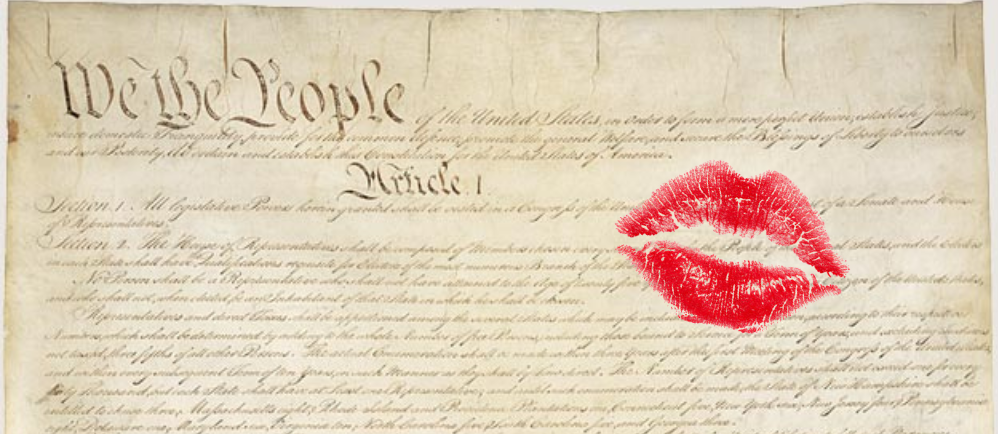 We the People of the United States, in Order to form a more perfect Union, establish Justice,
insure domestic Tranquility, provide for the common defence, promote the general Welfare, and secure the Blessings of Liberty to ourselves
and our Posterity, do ordain and establish this Constitution for the United States of America.
Article. I.
Section. 1. All legislative Powers herein granted shall be vested in a Congress of the of a Senate and House
of Representatives.
Section. 2. The House of Representatives shall be composed of Members chosen every the People of States, and the Electors
in each State shall have Qualifications requisite for Electors of the most numerous Branch of the
No Person shall be a Representative who shall not have attained to the Age of twenty five of the United States,
and who shall not, when elected, be an Inhabitant of that State in which he shall be chosen.
Representatives and direct Taxes shall be apportioned among the several States which may be according to their respective
Numbers, which shall be determined by adding to the whole Number of free Persons, including those bound to Service for a Term of Years, and excluding Indians
not taxed, three fifths of all other Persons. The actual Enumeration shall be made within three Years after the first Meeting of the Congress of the United States,
and within every subsequent Term of ten Years, in such Manner as they shall by Law direct. The Number of Representatives shall not exceed one for every
thirty Thousand, but each State shall have at Least one Representative; and until such enumeration shall be made, the State of New Hampshire shall be
entitled to chuse three, Massachusetts eight, Rhode Island and Providence Plantations one, Connecticut five, New York six, New Jersey four, Pennsylvania
eight, Delaware one, Maryland six, Virginia ten, North Carolina five, South Carolina five, and Georgia three.